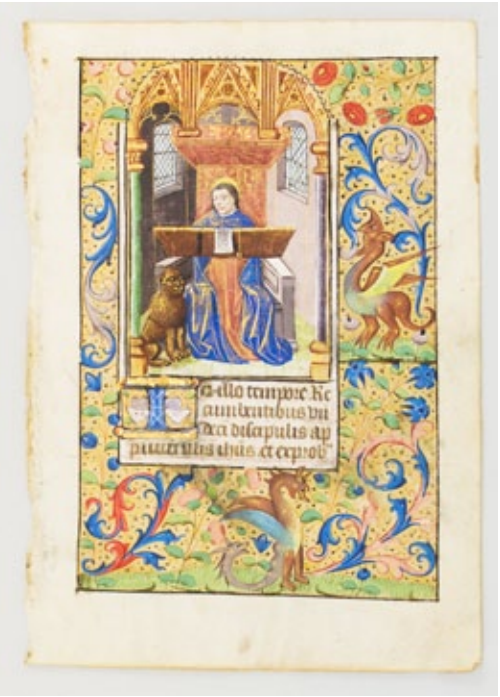 In illo tempore Re
cumbentibus un
deci discipulis ap
paruit illis ihus et exprob